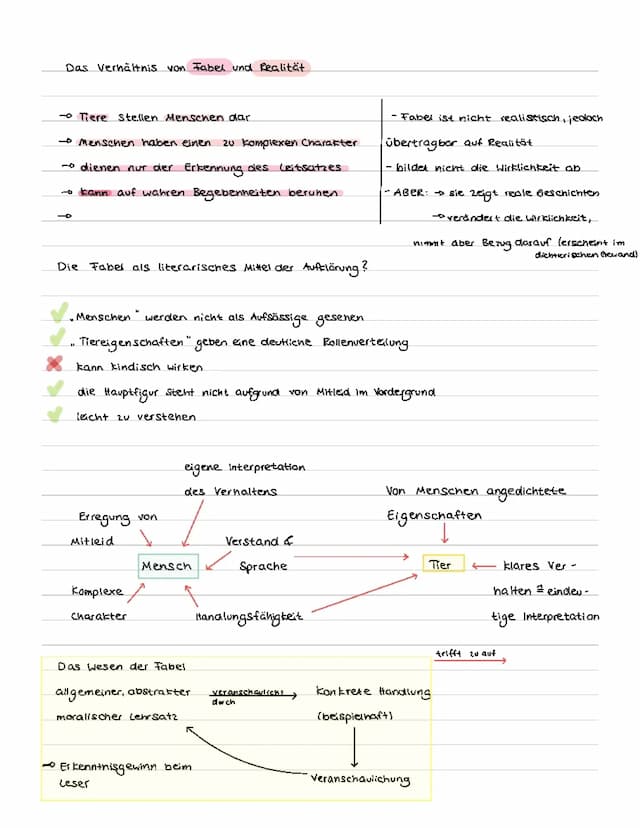 Das Verhältnis von Fabel und Realität
→ Tiere stellen Menschen dar
→ Menschen haben einen zu komplexen Charakter
→ dienen nur der Erkennung des Leitsatzes
→ kann auf wahren Begebenheiten beruhen
→
- Fabel ist nicht realistisch, jedoch
übertragbar auf Realität
- bildet nicht die Wirklichkeit ab
- ABER: → sie zeigt reale Geschichten
→ verändert die Wirklichkeit,
nimmt aber Bezug darauf (erscheint im
dichterischen Gewand)
Die Fabel als literarisches Mittel der Aufklärung?
„Menschen" werden nicht als Aufsässige gesehen
„Tiereigenschaften" geben eine deutliche Rollenverteilung
kann kindisch wirken
die Hauptfigur steht nicht aufgrund von Mitleid im Vordergrund
leicht zu verstehen
eigene Interpretation
des Verhaltens
Erregung von
Mitleid
Verstand &
Sprache
Mensch
Komplexe
Charakter
Handlungsfähigkeit
Von Menschen angedichtete
Eigenschaften
Tier
klares Ver-
halten ≙ eindeu-
tige Interpretation
trifft zu auf
Das Wesen der Fabel
allgemeiner, abstrakter
moralischer Lehrsatz
veranschaulicht
durch
konkrete Handlung
(beispielhaft)
Veranschaulichung
→ Erkenntnisgewinn beim
Leser